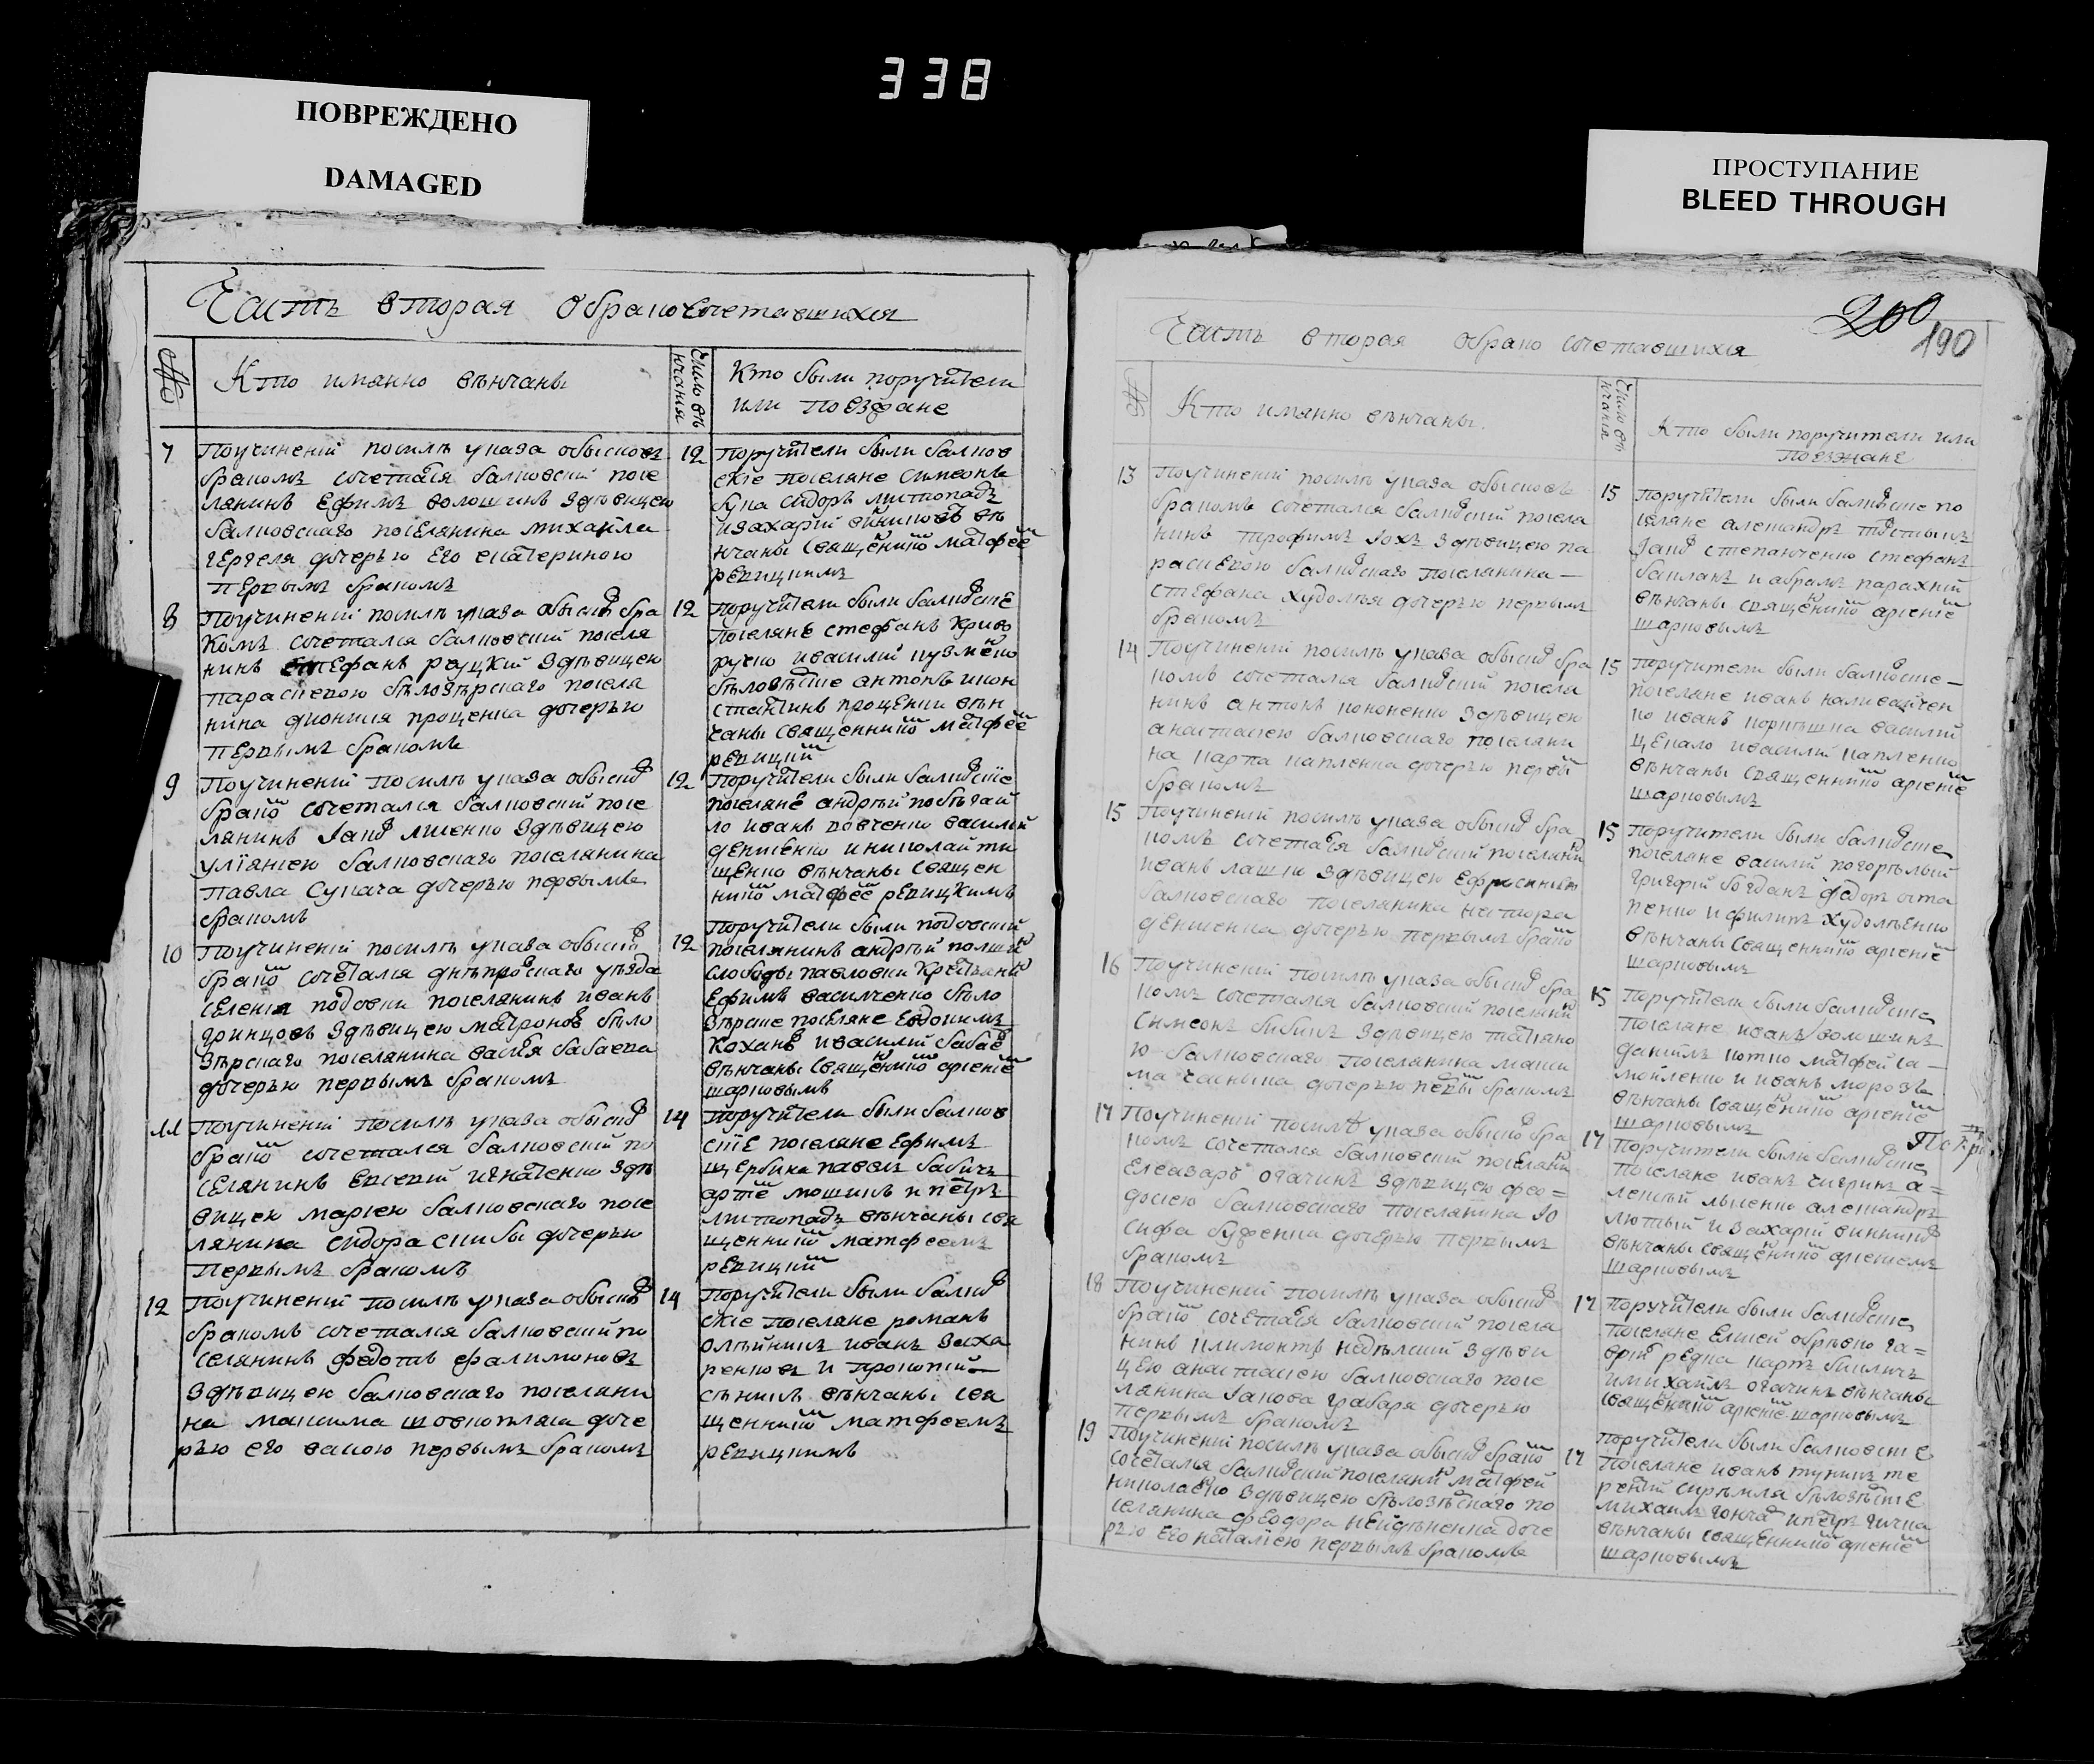 338
ПОВРЕЖДЕНО
DAMAGED
ПРОСТУПАНИЕ
BLEED THROUGH
Часть вторая обракосочетавшихся
№
Кто имянно вѣнчаны
Число вѣ
нчания
Кто были поручители
или поезжане
7
Поучинений посилѣ указа обысковъ
бракомъ сочетался балковский посе
лянинъ Ефимъ волошинъ здѣвицею
балковскаго поселянина михайла
гергеля дочерью его екатериною
первымъ бракомъ
12
поручители были балков
скіе поселяне симеонъ
сидоръ листопадъ
изахарий вѣ
нчаны священико матфее
ревицкимъ
8
Поучинений посилѣ указа обысков бра
комъ сочетался балковский поселя
нинъ стефанъ руцкий здѣвицею
параскевою бѣлозѣрскаго поселя
нина дионисия проценка дочерью
первымъ бракомъ
12
поручители были балковские
поселяне стефанъ криво
ручко ивасилий кузменко
бѣлозѣские антонъ икон
стантинъ проценки вѣн
чаны священнико матфее
ревицкий
9
Поучинений посилѣ указа обысков
брако сочетался балковский посе
лянинъ Iаков лисенко здѣвицею
улїяниею балковскаго поселянина
павла сукача дочерью первымъ
бракомъ
12
Поручители были балковскїе
поселяне андрѣй побѣгай
ло иванъ вовченко василий
денисенко иниколай ти
щенко вѣнчаны священ
нико матфее ревицкимъ
10
Поучинений посилѣ указа обысков
брако сочетался днѣпровскаго уѣзда
селения подовки поселянинъ иванъ
гринцовъ здѣвицею матроною бѣло
зѣрскаго поселянина василя бабаева
дочерью первымъ бракомъ
12
поручители были подовский
поселянинъ андрѣй
слободы павловки крестьянин
Ефимъ василченко бѣло
зѣрские поселяне Евдокимъ
коханъ ивасилий бабае
вѣнчаны священико арсение
шарковымъ
11
Поучинений посилѣ указа обысков
брако сочетался балковский по
селянинъ евсевий игнатенко здѣ
вицею мариею балковскаго посе
лянина сидора скибы дочерью
первымъ бракомъ
14
поручители были балков
скїе поселяне Ефимъ
щербина павелъ бабичъ
арте мошинъ и петръ
листопадъ вѣнчаны свя
щеннико матфеемъ
ревицкий
12
Поучинений посилѣ указа обысков
бракомъ сочетался балковский по
селянинъ федотъ ефалимоновъ
здѣвицею балковскаго поселяни
на максима шовкопляса доче
рью его васою первымъ бракомъ
14
поручители были балков
скіе поселяне романъ
олѣйникъ иванъ заха
ренковъ и прокопий
вѣнчаны свя
щеннико матфеемъ
ревицкимъ
200
190
Часть вторая обрако сочетавшихся
№
Кто имянно вѣнчаны
Число вѣ
нчания
Кто были поручители или
поезжане
13
Поучинений посилѣ указа обысковъ
бракомъ сочетался балковский поселя
нинъ трофимъ Iохъ здѣвицею па
раскевою балковскаго поселянина
стефана худолѣя дочерью первымъ
бракомъ
15
поручители были балковские по
селяне александръ толстыхъ
Iаков степанченко стефанъ
бакланъ и абрамъ парахний
вѣнчаны священико арсение
шарковымъ
14
Поучинений посилѣ указа обысков бра
комъ сочетался балковский поселя
нинъ антонъ кононенко здѣвицею
анастасиею балковскаго поселяни
на карпа капленка дочерью первы
бракомъ
15
поручители были балковские
поселяне иванъ каливайчен
ко иванъ корнѣшка василий
цекало ивасилий капленко
вѣнчаны священнико арсение
шарковымъ
15
Поучинений посилѣ указа обысков бра
комъ сочетался балковский поселянин
иванъ лашко здѣвицею ефросиниею
балковскаго поселянина нестора
денисенка дочерью первымъ брако
15
поручители были балковские
поселяне василий погорѣлый
григорий богданъ федоръ оста
пенко и филипъ худолѣенко
вѣнчаны священнико арсение
шарковымъ
16
Поучинений посилѣ указа обысков бра
комъ сочетался балковский поселянин
симеонъ бибикъ здѣвицею татiяно
ю балковскаго поселянина макси
ма часныка дочерью первы бракомъ
15
поручители были балковские
поселяне иванъ волошинъ
даниилъ котко матфей са
мойленко и иванъ морозъ
вѣнчаны священико арсение
шарковымъ
17
Поучинений посилѣ указа обысков бра
комъ сочетался балковский поселянин
Елеазаръ одачинъ здѣвицею фео=
досиею балковскаго поселянина Iо
сифа буденка дочерью первымъ
бракомъ
17
поручители были балковские
поселяне иванъ чигринъ а=
лексѣй лысенко александръ
лютый и захарий винник
вѣнчаны священико арсениемъ
шарковымъ
18
Поучинений посилѣ указа обысков
брако сочетался балковский поселя
нинъ климонтъ недѣлский здѣви
цею анастасиею балковскаго посе
лянина Iакова грабаря дочерью
первымъ бракомъ
17
поручители были балковские
поселяне Елисей обрѣвко га=
врий редка карпъ билычъ
имихаилъ одачинъ вѣнчаны
священико арсение шарковымъ
19
Поучинений посилѣ указа обысков брако
сочетался балковский поселянин матфей
николаенко здѣвицею бѣлозѣскаго по
селянина феодора нейдѣненка доче
рью его наталїею первымъ бракомъ
17
поручители были балковские
поселяне иванъ тукилъ те
рентий сирѣмля бѣлозѣские
михаилъ гонча ипетръ гичка
вѣнчаны священнико арсение
шарковымъ